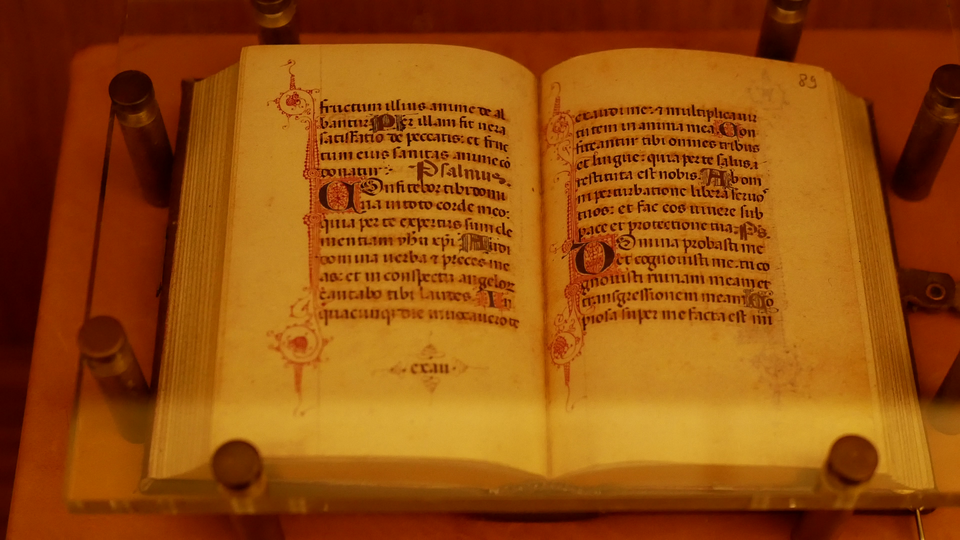 fructum illius anime de al
bantur Per illam fit vera
satisfatio de peccatis: et fruc
tum eius sanitas anime cō
donatur Psalmus.
Onfitebor tibi domi
in toto corde meo:
quia per te expertus sum cle
mentiam
uerba & preces me
as: et in conspectu angeloꝝ
cantabo tibi laudes. In
quacunq; die inuocauero te
cxau
89
et multiplicaui
tutem in anima mea. Con
fiteantur tibi omnes tribus
et lingue: quia per te salus
restituta est nobis. Ab om
ni perturbatione libera seruo
tuos: et fac eos uiuere sub
pace et protectione tua. Ps.
Omina probasti me
et cognouisti me. tu co
gnouisti ruinam meam et
transgressionem meam
piosa super me facta est mi